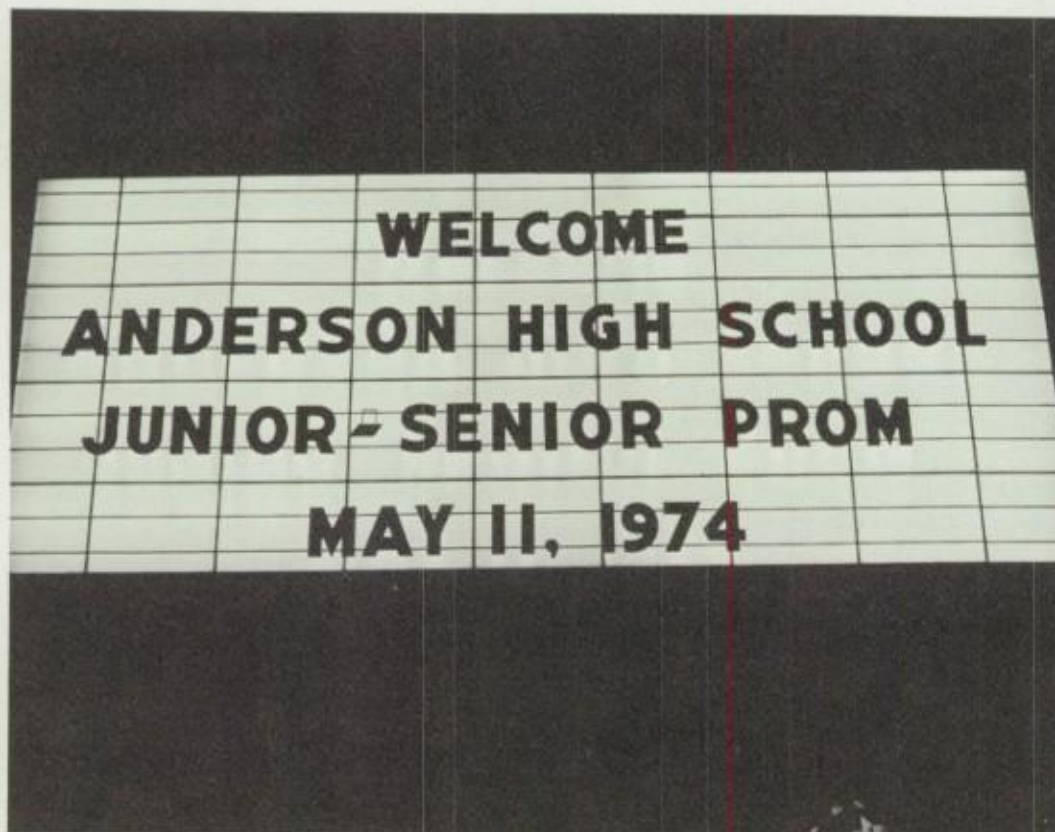 WELCOME
ANDERSON HIGH SCHOOL
JUNIOR-SENIOR PROM
MAY 11, 1974